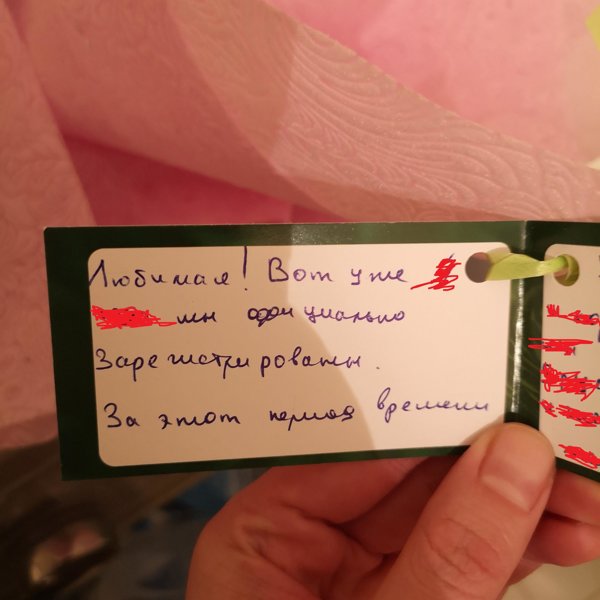 Любимая! Вот уже
мы официально
Зарегистрированы.
За этот период времени